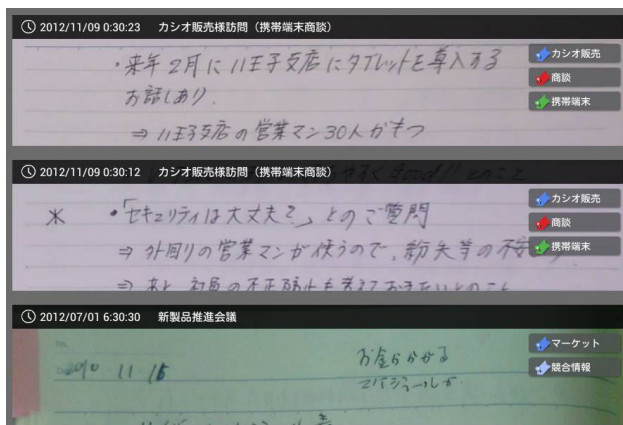 2012/11/09 0:30:23 カシオ販売様訪問（携帯端末商談）
・来年2月に八王子支店にタブレットを導入する
お話しあり.
⇒ 八王子支店の営業マン30人がもつ
カシオ販売
商談
携帯端末
2012/11/09 0:30:12 カシオ販売様訪問（携帯端末商談）
Good!! とのこと
※ ・「セキュリティは大丈夫?」とのご質問
⇒ 外回りの営業マンが使うので、紛失等の不安
⇒ あと 社員の不正防止も考えておきたいとのこと
カシオ販売
商談
携帯端末
2012/07/01 6:30:30 新製品推進会議
2010 - 11 - 15
お金がかかる
マーケット
競合情報